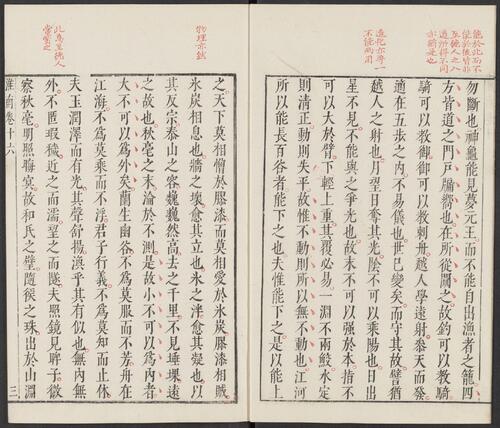 能於此而不
能於彼皆非
至德人之入
道所得不同
亦猶是也
造化亦專一
不能兩用
勿斷也神龜能見夢元王而不能自出漁者之籠四
方皆道之門戶牖嚮也在所從闚之故釣可以教騎
騎可以教御御可以教刺舟越人學遠射參天而發
適在五步之内不易儀也世已變矣而守其故譬猶
越人之射也月望日奪其光陰不可以乘陽也日出
星不見不能與之爭光也故末不可以强於本指不
可以大於臂下輕上重其覆必易一淵不兩鮫水定
則清正動則失平故惟不動則所以無不動也江河
所以能長百谷者能下之也夫惟能下之是以能上
物理亦然
至德人
之天下莫相憎於膠漆而莫相愛於氷炭膠漆相賊
氷炭相息也牆之壞愈其立也氷之泮愈其凝也以
其反宗泰山之容巍巍然高去之千里不見埵堁遠
之故也秋毫之末淪於不測是故小不可以爲内者
大不可以爲外矣蘭生幽谷不爲莫服而不芳舟在
江海不爲莫乘而不浮君子行義不爲莫知而止休
夫玉潤澤而有光其聲舒揚渙乎其有似也無内無
外不匿瑕穢近之而濡望之而隧夫照鏡見眸子微
察秋毫明照晦冥故和氏之璧隨侯之珠出於山淵
淮南卷十六
三